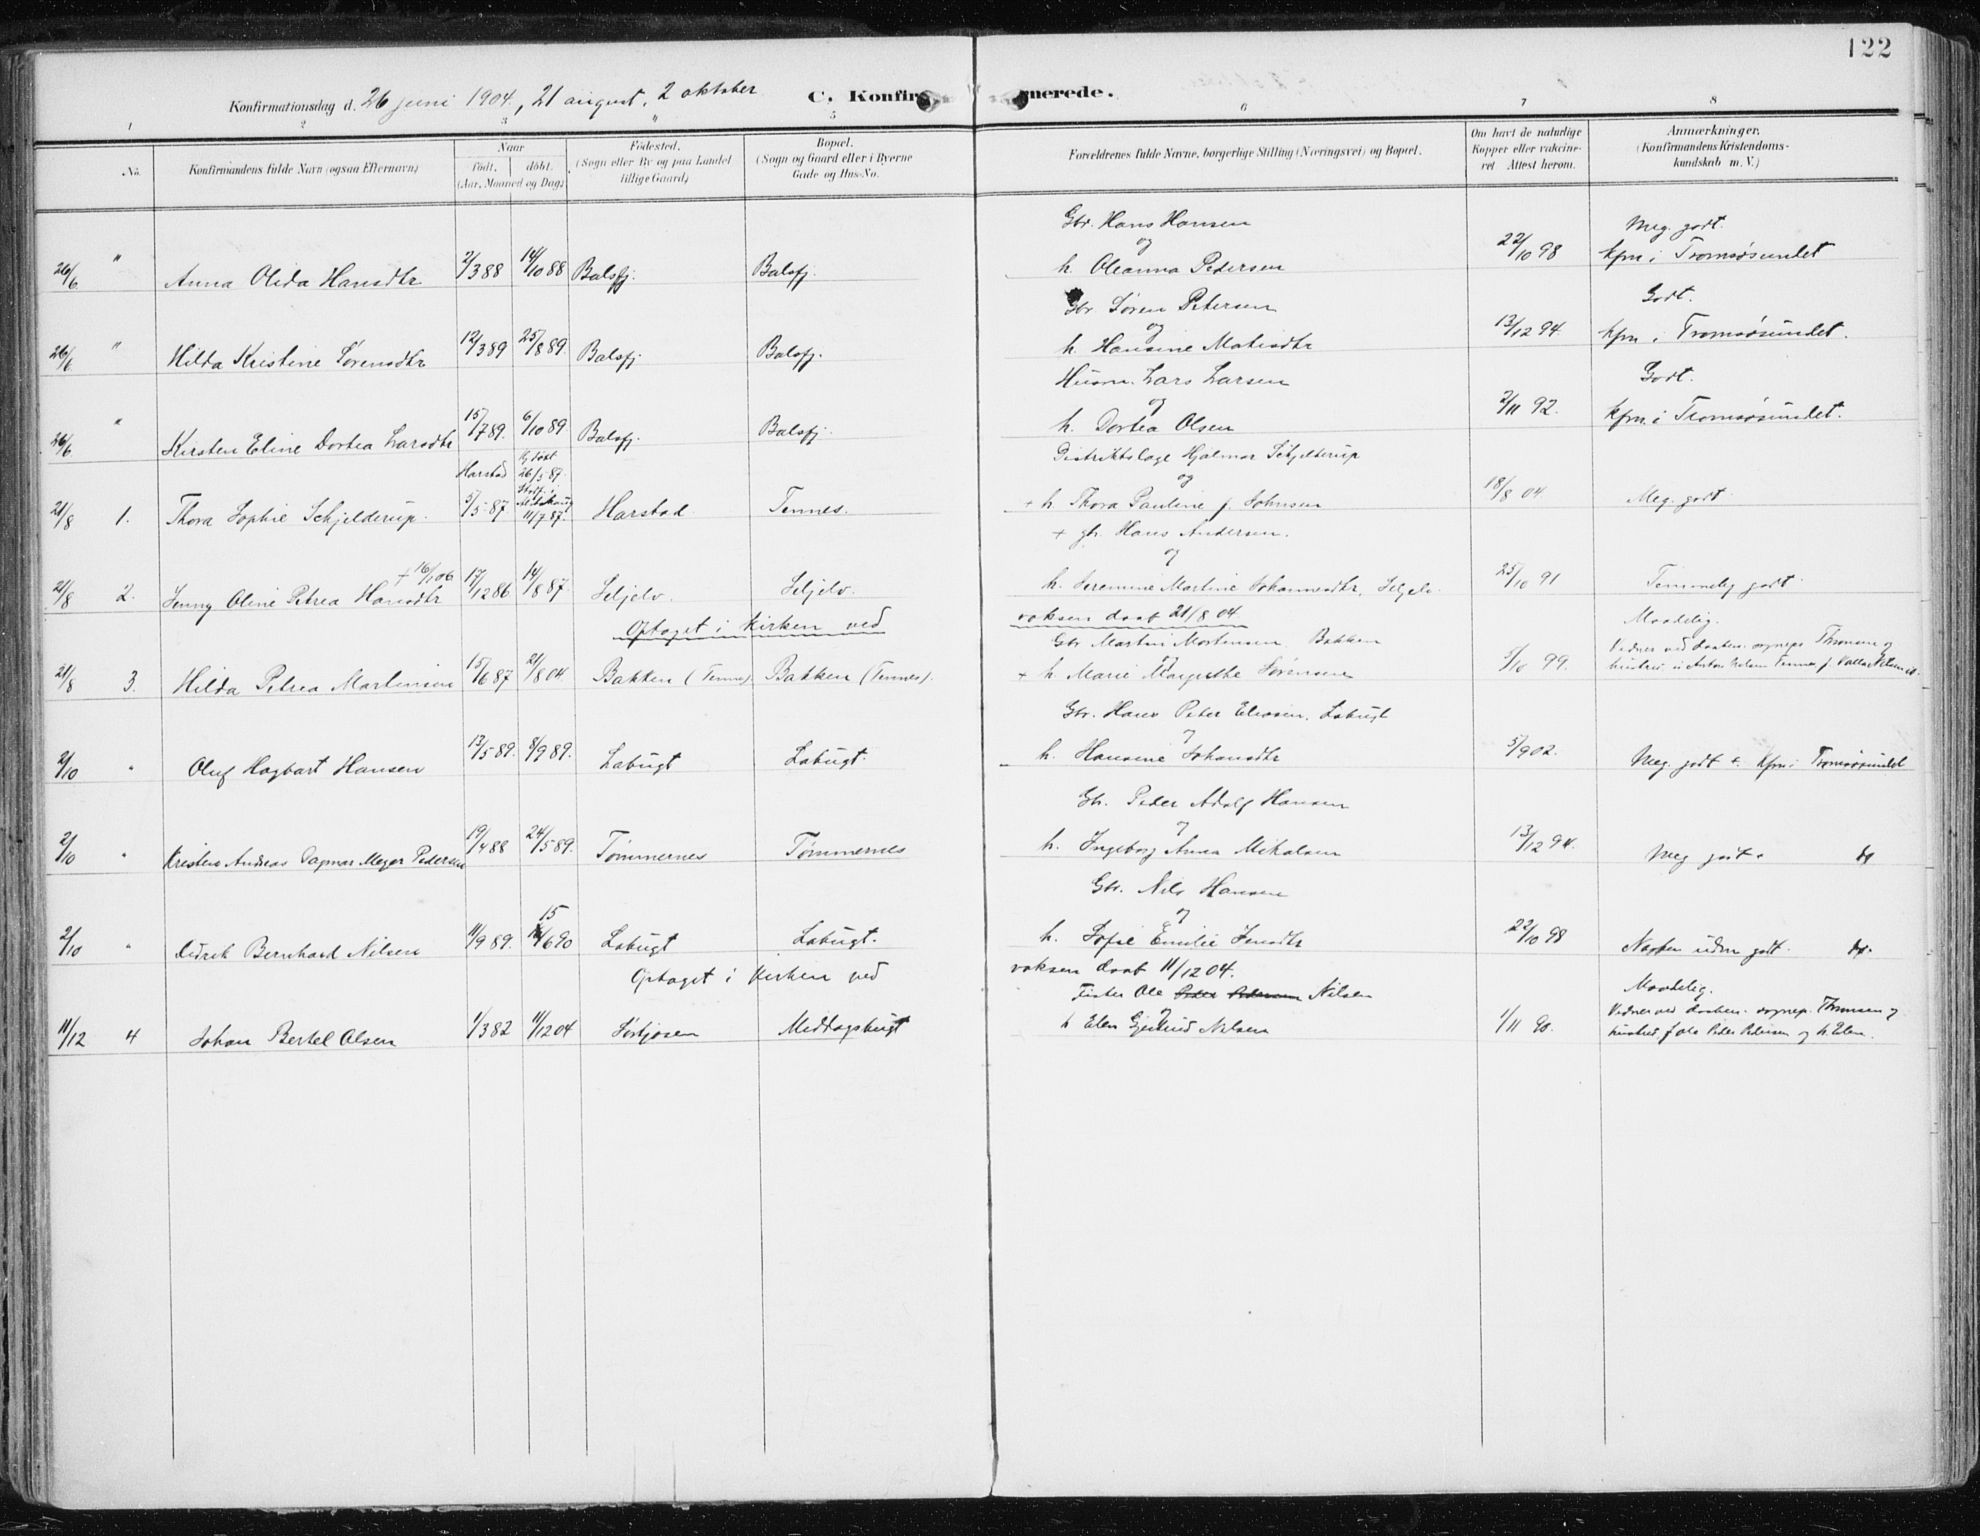 122
Konfirmationsdag d. 26 juni 1904, 21 august, 2 oktober
C. Konfir merede.
1 2 3 " 5 6 7 8
No.
Konfirmandens fulde Navn (ogsaa Efternavn)
Naar
født, døbt,
(Aar, Maaned og Dag)
Fødested.
(Sogn eller By og paa Landet
tillige Gaard)
Bopæl.
(Sogn og Gaard eller i Byerne
Gade og Hus-No.
Forældrenes fulde Navne, borgerlige Stilling (Næringsvei) og Bopæl.
Om havt de naturlige
Kopper eller vakcine-
ret Attest herom.
Anmærkninger.
(Konfirmandens Kristendoms-
kundskab m. V.)
Gbr. Hans Hansen
Meg. godt.
26/6 " Anna Olida Hansdtr 2/3 88 14/10 88 Balsfj. Balsfj. og h. Oleanna Pedersen 22/10 98 kfm. i Tromsøsundet
Gbr Søren Petersen
Godt.
26/6 " Hilda Kristine Sørensdtr 12/3 89 25/8 89. Balsfj. Balsfj. og h. Hansine Matisdtr 13/12 94 kfm. i Tromsøsundet.
Husm. Lars Larsen
Godt.
26/6 " Kirsten Eline Dortea Larsdtr 15/7 89. 6/10 89 Balsfj. Balsfj. og h. Dortea Olsen 2/11 92. kfm. i Tromsøsundet.
Harstad
Hj.døbt 26/5 87.
Distriktslæge Hjalmar Schjelderup
21/8 1. Thora Sophie Schjelderup. 5/5 87 11/7 87. Harstad Tennes. og + h. Thora Pauline f. Johnsen 18/8 04. Meg. godt
+ 16/1 06
+ gb. Hans Andersen.
21/8 2. Jenny Oline Petrea Hansdtr 17/12 86 14/8 87. Seljelv. Seljelv. og h. Jeremine Martine Johannesdtr, Seljelv. 25/10 91 Temmelig godt
Optaget i kirken ved voksen daab 21/8 04.
Maadelig.
Gbr Martin Mortensen Bakken
Vidner ved daaben. sognepr Thomsen og
21/8 3. Hilda Petrea Martinsen 15/6 87 21/8 04. Bakken (Tennes) Bakken (Tennes). og + h Marie Margrethe Sørensen 5/10 99.
Gbr. Hans Peter Eliasen, Labugt
2/10 " Oluf Hagbart Hansen 13/5 89. 8/9 89. Labugt Labugt. og h. Hansine Johansdtr 5/9 02. Meg. godt +. Kfm. i Tromsøsundet
Gb. Peder Adolf Hansen
2/10 " Kristen Andreas Dagmar Meyer Pedersen 19/4 88 24/5 89. Tømmernes Tømmernes og h. Ingeborg Anna Mikalsen 13/12 94. Meg godt.
Gbr. Nils Hansen
15
2/10 " Didrik Bernhard Nilsen 11/9 89. /6 90 Labugt Labugt. og h. Sofie Emilie Jensdtr 22/10 98 godt.
Optaget i kirken ved voksen daab 11/12 04.
Maadelig.
Fisker Ole Peder Pedersen Nilsen
Vidner ved daaben. sognepr. Thomsen og
11/12 4 Johan Bertel Olsen 1/3 82 11/12 04 Sørkjosen Middagsbugt og h Elen Gjertrud Nilsen 1/11 90. hustru, f Ole Peder Pedersen og h. Elen.